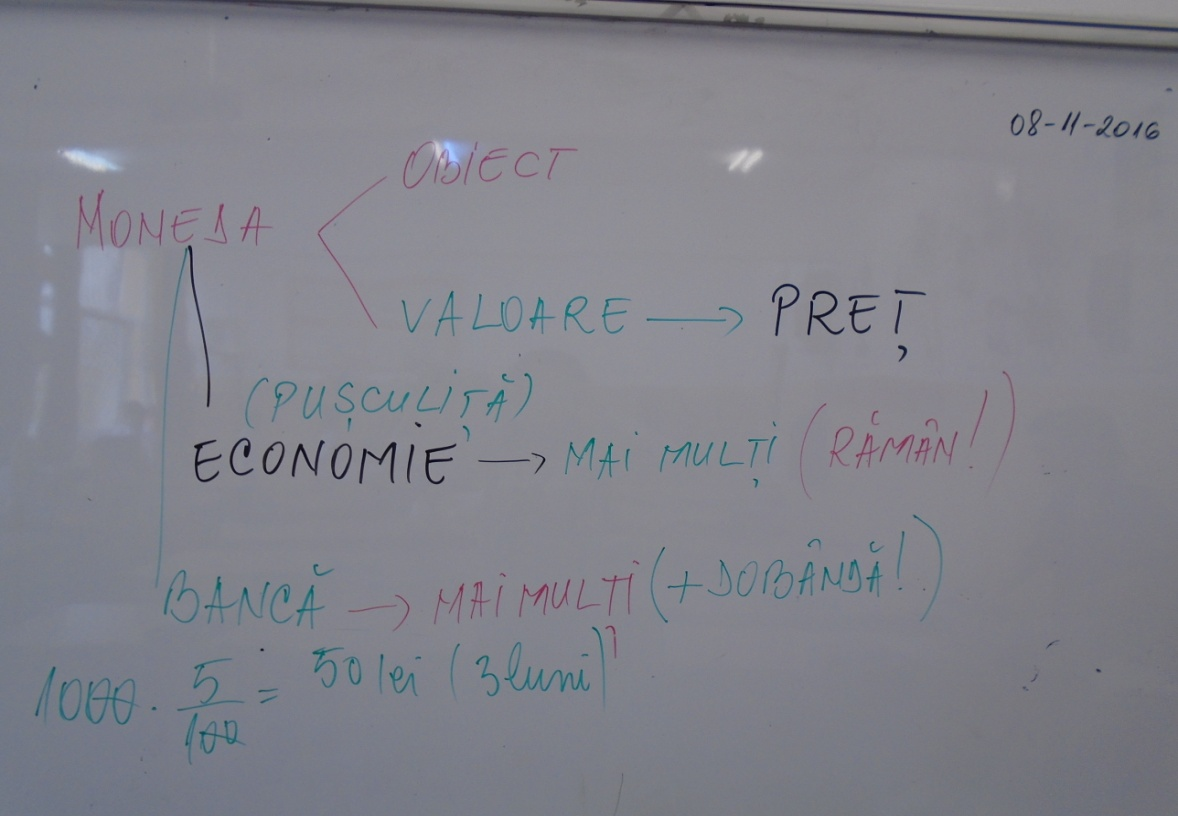 08-11-2016
OBIECT
MONEDA
VALOARE → PREȚ
(PUȘCULIȚĂ)
ECONOMIE → MAI MULȚI (RĂMÂN!)
BANCĂ → MAI MULȚI (+DOBÂNDĂ!)
1000 · 5/100 = 50 lei (3 luni)